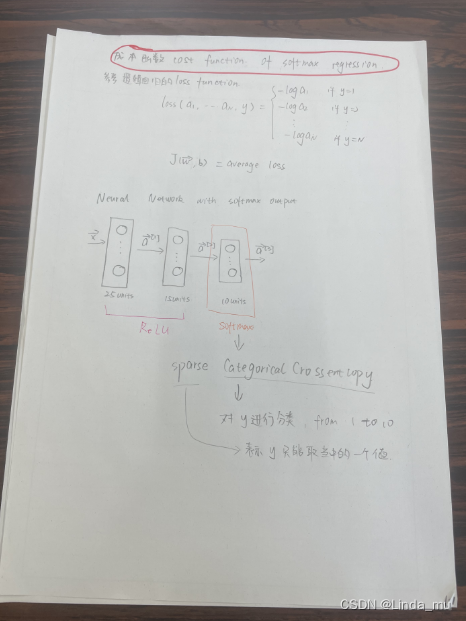 成本函数 cost function of softmax regression
逻辑回归的loss function
loss(a₁, ... aₙ, y) = { -log a₁ if y=1
-log a₂ if y=2
⋮
-log aN if y=N
J(w⃗, b) = average loss
Neural Network with softmax output
x⃗ → a⃗[1] → a⃗[2] → a⃗[3]
25 units 15 units 10 units
ReLU softmax
sparse Categorical Crossentropy
对 y 进行分类, from 1 to 10
表示 y 只能取当中的一个值
CSDN @Linda_mu